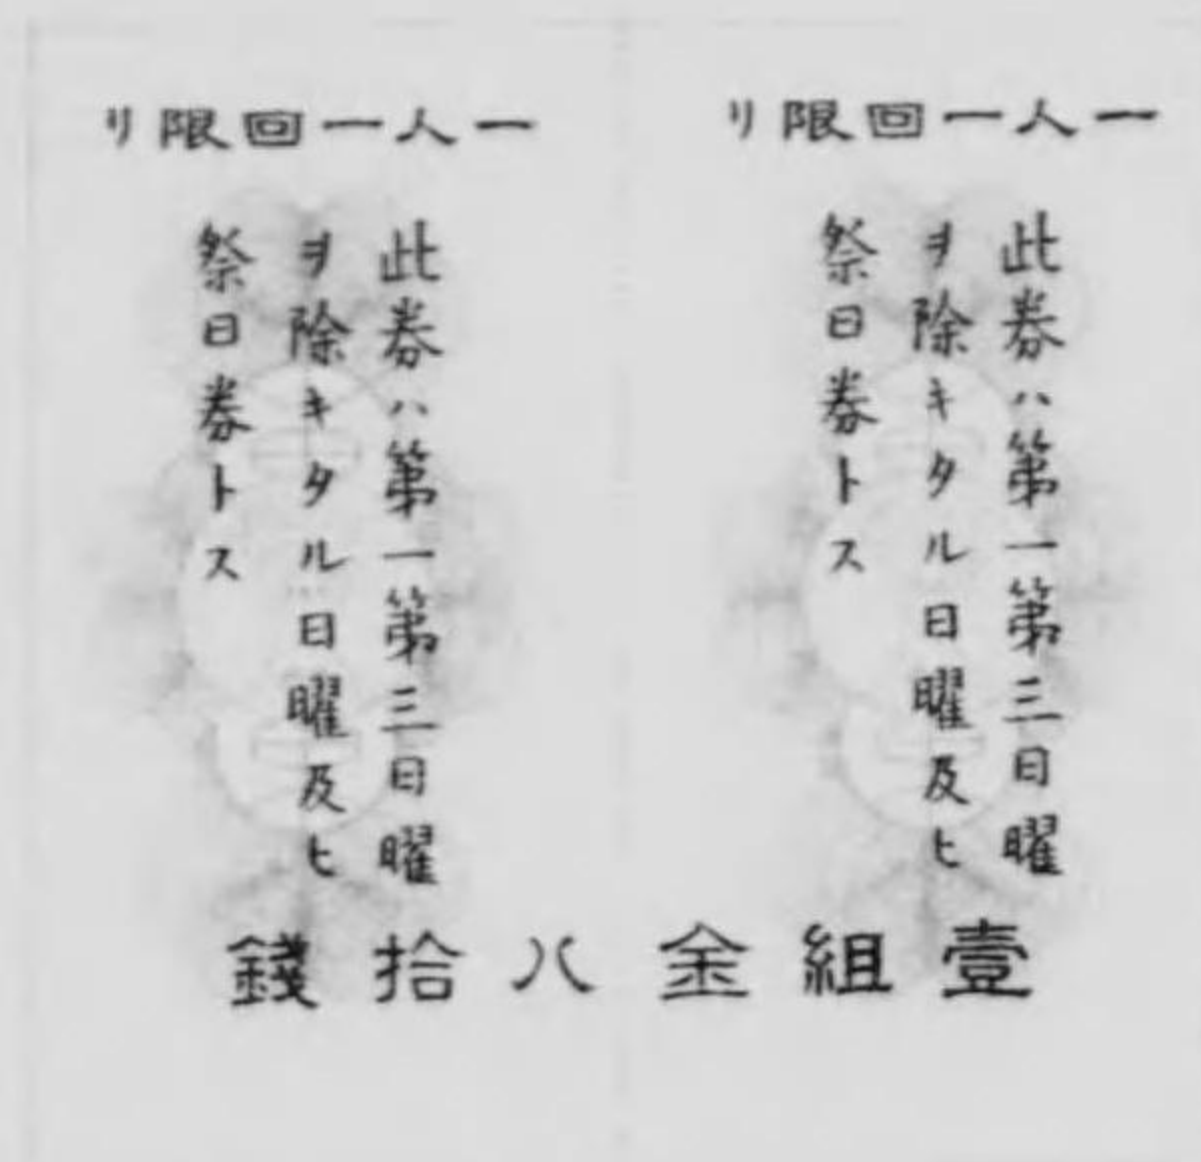 一人一回限リ
此券ハ第一第三日曜
ヲ除キタル日曜及ヒ
祭日券トス
一人一回限リ
此券ハ第一第三日曜
ヲ除キタル日曜及ヒ
祭日券トス
壹組金八拾錢